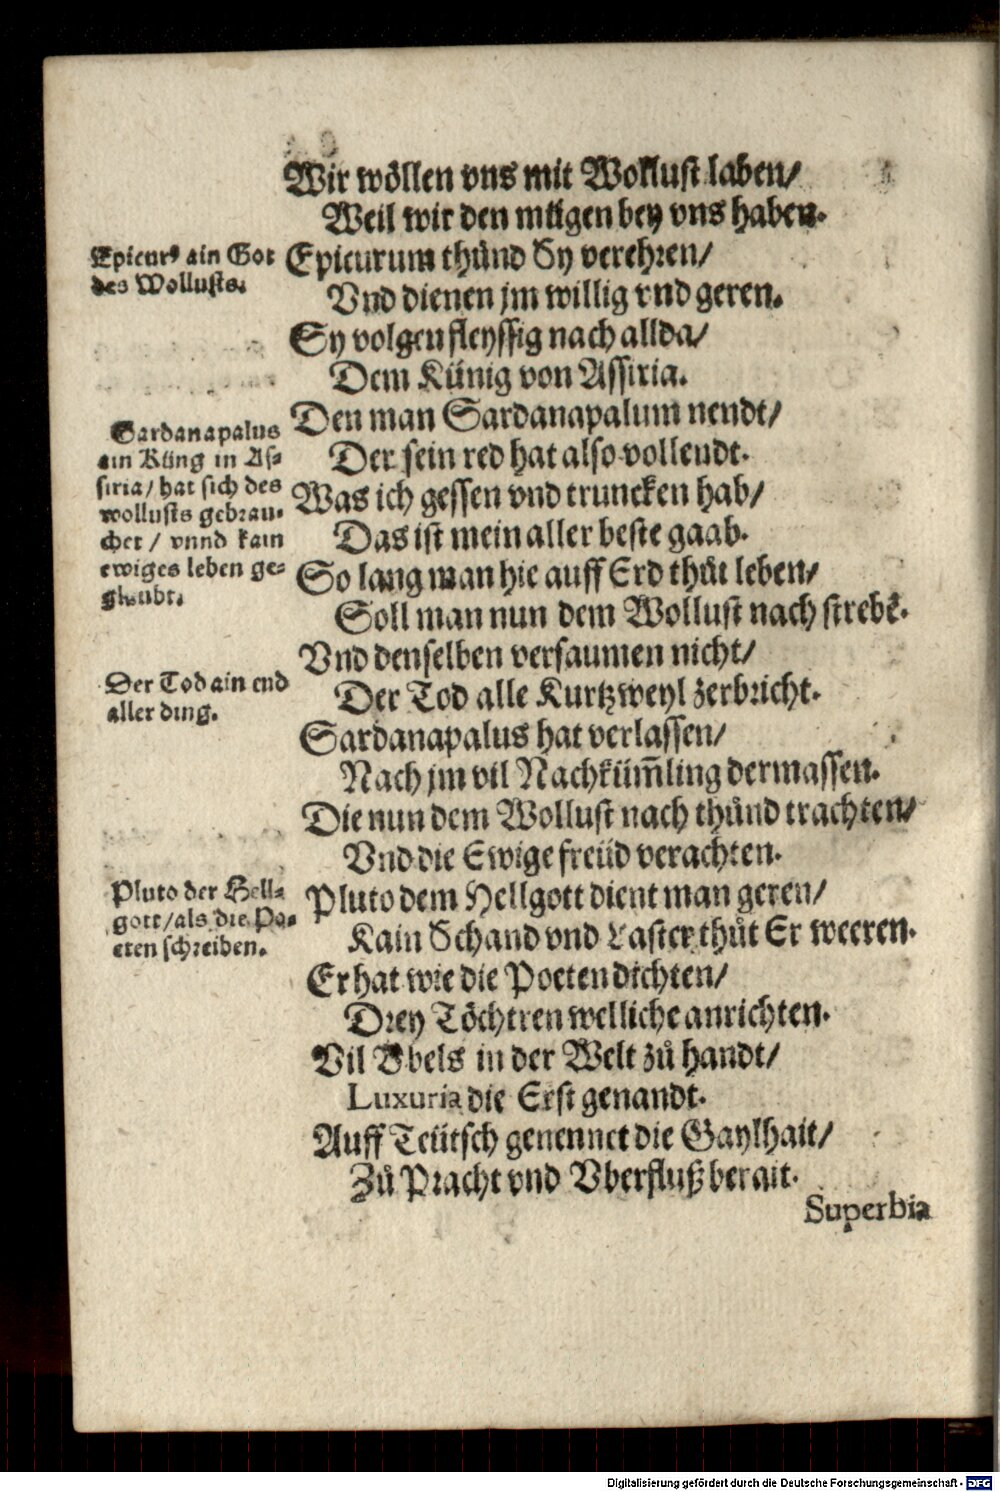 Wir wöllen vns mit Wollust laben/
Weil wir den mügen bey vns haben.
Epicurꝰ ain Got
des Wollusts.
Epicurum thůnd Sy verehren/
Vnd dienen jm willig vnd geren.
Sy volgen fleyssig nach allda/
Dem Künig von Assiria.
Sardanapalus
ain Küng in As-
siria/ hat sich des
wollusts gebrau-
chet / vnnd kain
ewiges leben ge-
glaubt.
Den man Sardanapalum nendt/
Der sein red hat also vollendt.
Was ich gessen vnd truncken hab/
Das ist mein aller beste gaab.
So lang man hie auff Erd thůt leben/
Soll man nun dem Wollust nach strebē.
Vnd denselben versaumen nicht/
Der Tod ain end
aller ding.
Der Tod alle Kurtzweyl zerbricht.
Sardanapalus hat verlassen/
Nach jm vil Nachküm̃ling dermassen.
Die nun dem Wollust nach thůnd trachten/
Vnd die Ewige freüd verachten.
Pluto der Hell-
gott/als die Po-
eten schreiben.
Pluto dem Hellgott dient man geren/
Kain Schand vnd Laster thůt Er weeren.
Er hat wie die Poeten dichten/
Drey Töchtren welliche anrichten.
Vil Vbels in der Welt zů handt/
Luxuria die Erst genandt.
Auff Teütsch genennet die Gaylhait/
Zů Pracht vnd Vberfluß berait.
Superbia
Digitalisierung gefördert durch die Deutsche Forschungsgemeinschaft - DFG